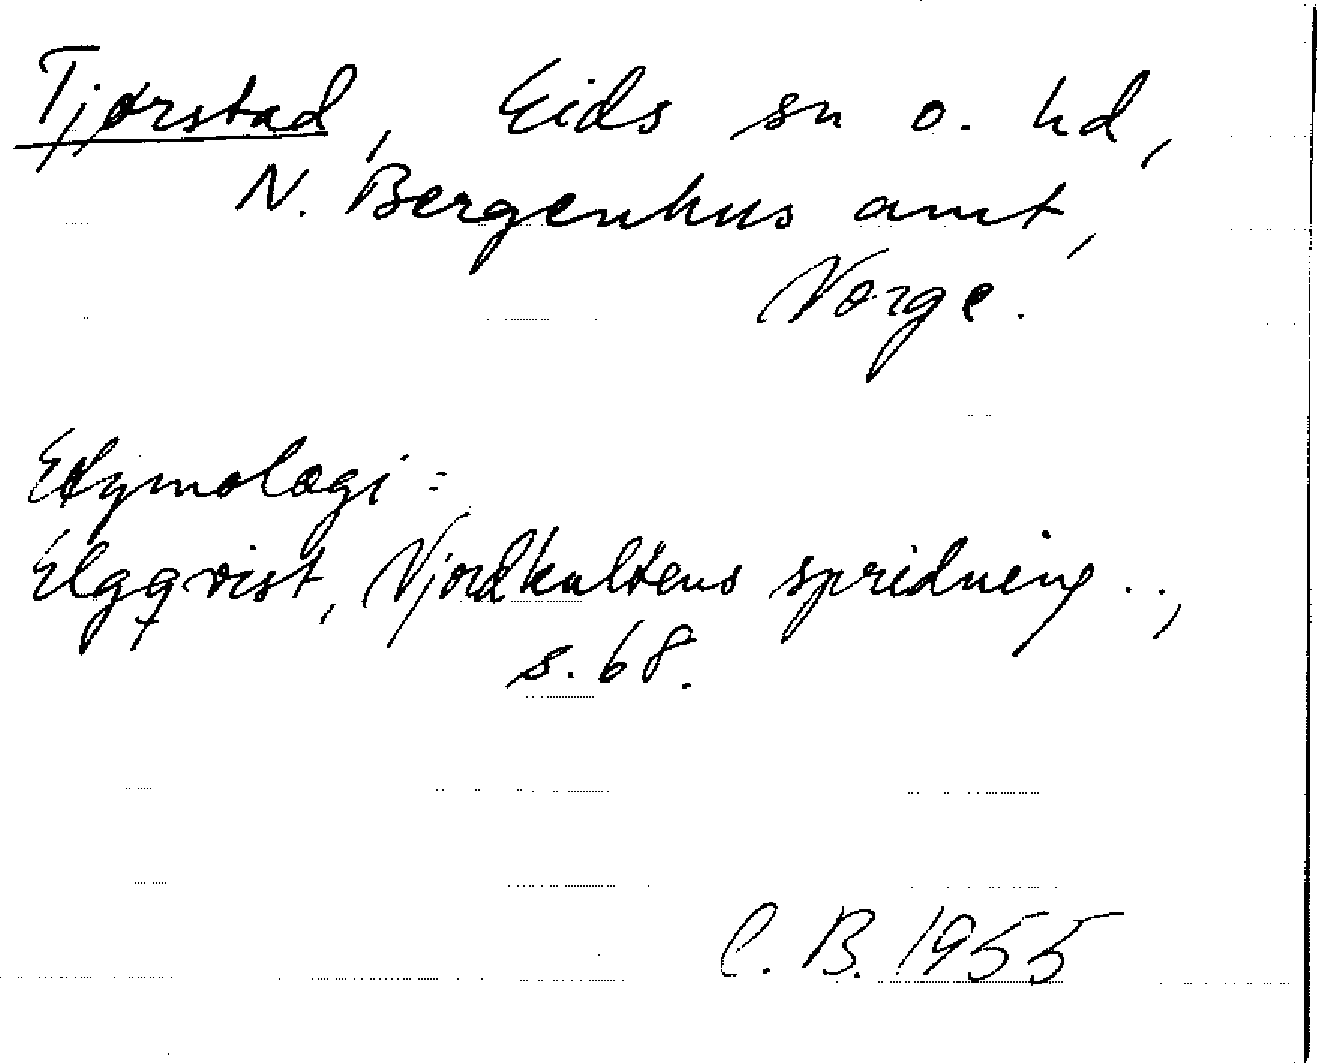 Tjørstad, Eids sn o. hd,
N. Bergenhus amt,
Norge.
Etymologi:
Elgqvist, Njordkultens spridning..,
s. 68.
C. B. 1955